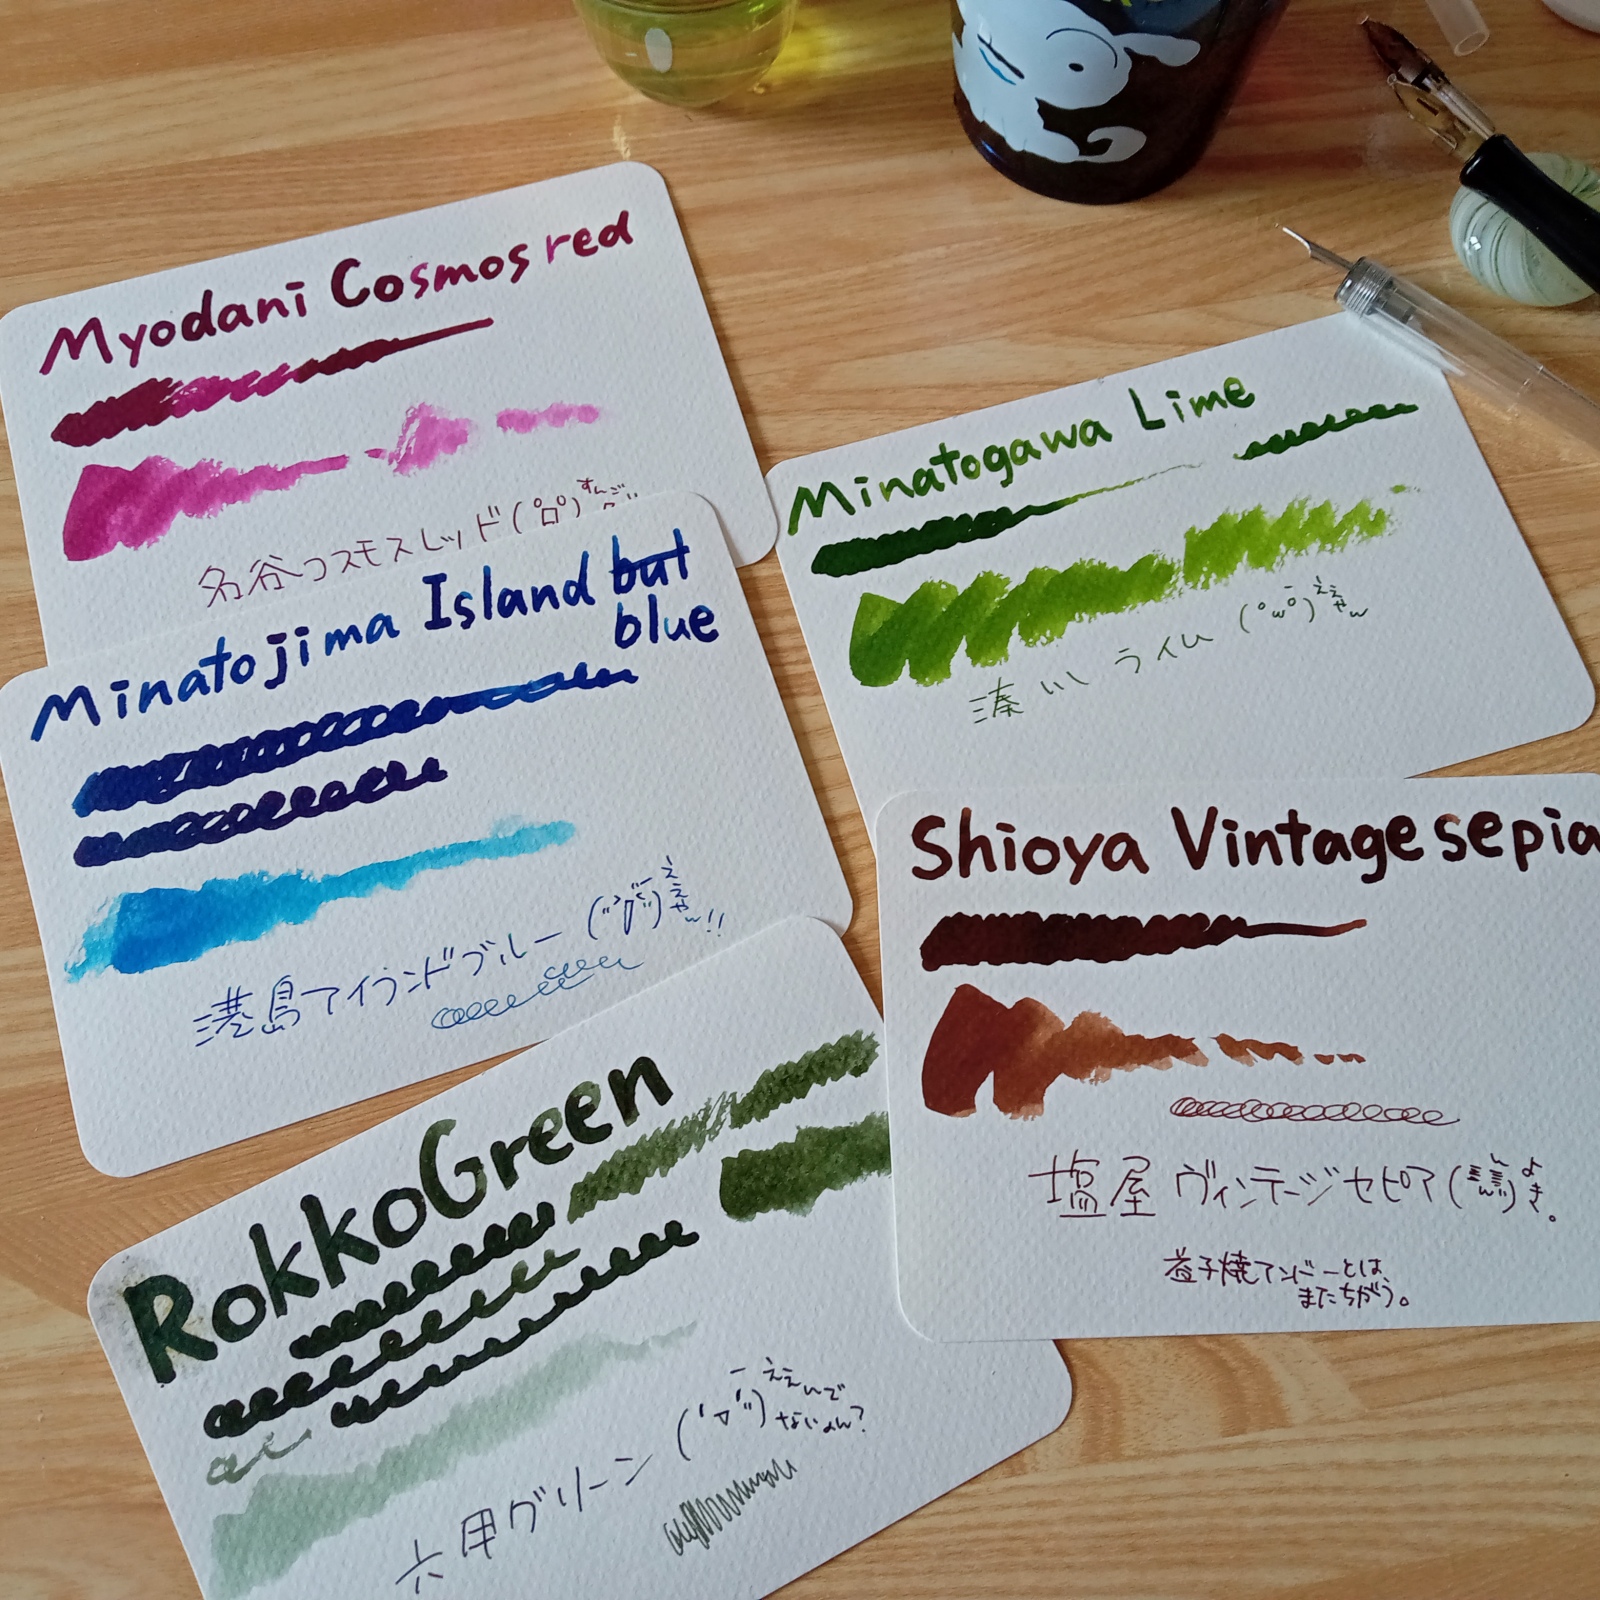 Myodani Cosmos red
名谷コスモスレッド(°ロ°)すんご
Minatojima Island but
blue
港島アイランドブルー
ええやん!!
Minatogawa Lime
湊川 ライム (°ω°)
ええやん
Shioya Vintage sepia
塩屋 ヴィンテージセピア
よき。
益子焼アンバーとは
またちがう。
RokkoGreen
六甲グリーン
ええんで
ないん?